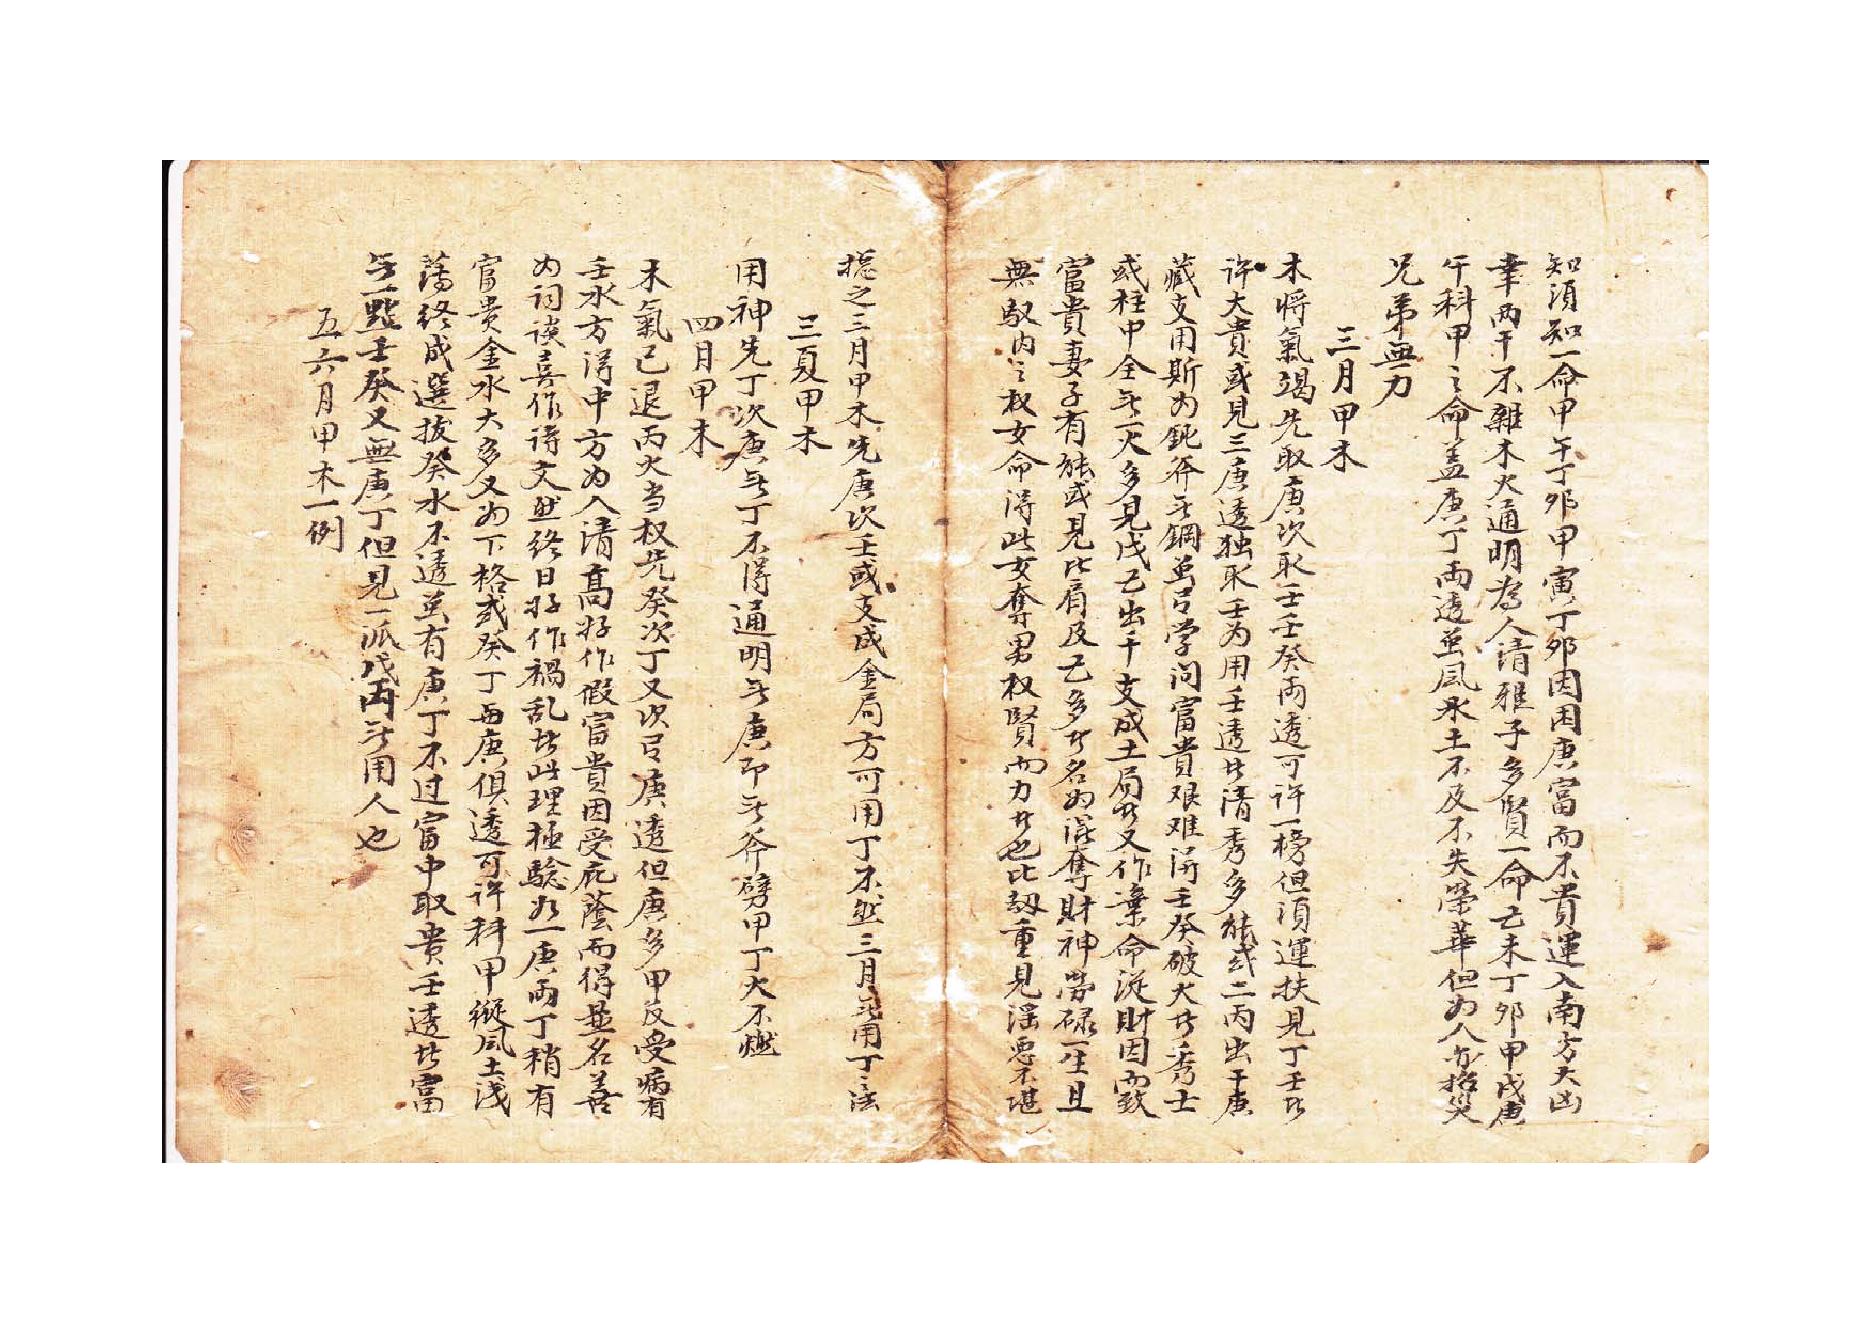 知須知一命甲午丁卯甲寅丁卯因困庚富而不貴運入南方大凶
幸両干不雜木火通明為人清雅子多賢一命己未丁卯甲戌庚
午科甲之命盖庚丁両透虽風水土不及不失榮華但为人方招災
兄弟無力
三月甲木
木将氣竭先取庚次取壬壬癸両透可许一榜但須運扶見丁壬比
许大貴或見三庚透独取壬为用壬透出清秀多能或二丙出干庚
藏支用斯为鈍斧无鋼虽有学问富貴艰难得壬癸破火出秀士
或柱中全无一火多見戊己出干支成土局者又作棄命従財因而致
富貴妻子有能或見比肩及己多者名为混奪財神勞碌一生且
無馭内之权女命得此女奪男权賢而力者也比劫重見滛悪不堪
捴之三月甲木先庚次壬或支成金局方可用丁不然三月无用丁之法
三夏甲木
用神先丁次庚无丁不得通明无庚即无斧劈甲丁火不燃
四月甲木
木氣已退丙火当权先癸次丁又次有庚透但庚多甲反受病有
壬水方得中方为人清高好作假富貴因受庇蔭而得显名善
为词谈喜作诗文然终日好作禍乱者此理極驗水一庚両丁稍有
富贵金水大多又为下格或癸丁與庚俱透可许科甲縱風土浅
薄终成選拔癸水不透虽有庚丁不过富中取貴壬透者富
无一點壬癸又無庚丁但見一派戊丙无用人也
五六月甲木一例